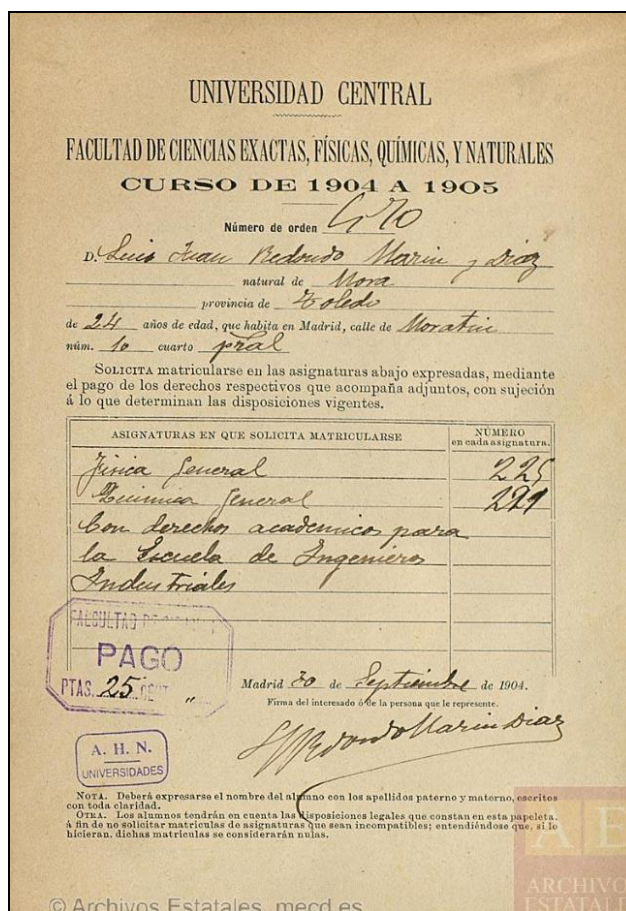 UNIVERSIDAD CENTRAL
FACULTAD DE CIENCIAS EXACTAS, FÍSICAS, QUÍMICAS, Y NATURALES
CURSO DE 1904 A 1905
Número de orden
D. Luis Juan Redondo Marin y Diaz
natural de Mora
provincia de Toledo
de 24 años de edad, que habita en Madrid, calle de Moratin
núm. 10 cuarto pral
SOLICITA matricularse en las asignaturas abajo expresadas, mediante
el pago de los derechos respectivos que acompaña adjuntos, con sujeción
á lo que determinan las disposiciones vigentes.
ASIGNATURAS EN QUE SOLICITA MATRICULARSE NÚMERO en cada asignatura.
Fisica General 225
Quimica General
Con derechos academicos para
la Escuela de Ingenieros
Industriales
PAGO
PTAS. 25
Madrid 30 de Septiembre de 1904.
Firma del interesado ó de la persona que le represente.
Redondo Marin Diaz
A. H. N.
UNIVERSIDADES
NOTA. Deberá expresarse el nombre del alumno con los apellidos paterno y materno, escritos
con toda claridad.
OTRA. Los alumnos tendrán en cuenta las disposiciones legales que constan en esta papeleta,
á fin de no solicitar matriculas de asignaturas que sean incompatibles; entendiéndose que, si lo
hicieran, dichas matriculas se considerarán nulas.
AE
ARCHIVOS
ESTATALE
© Archivos Estatales, mecd.es